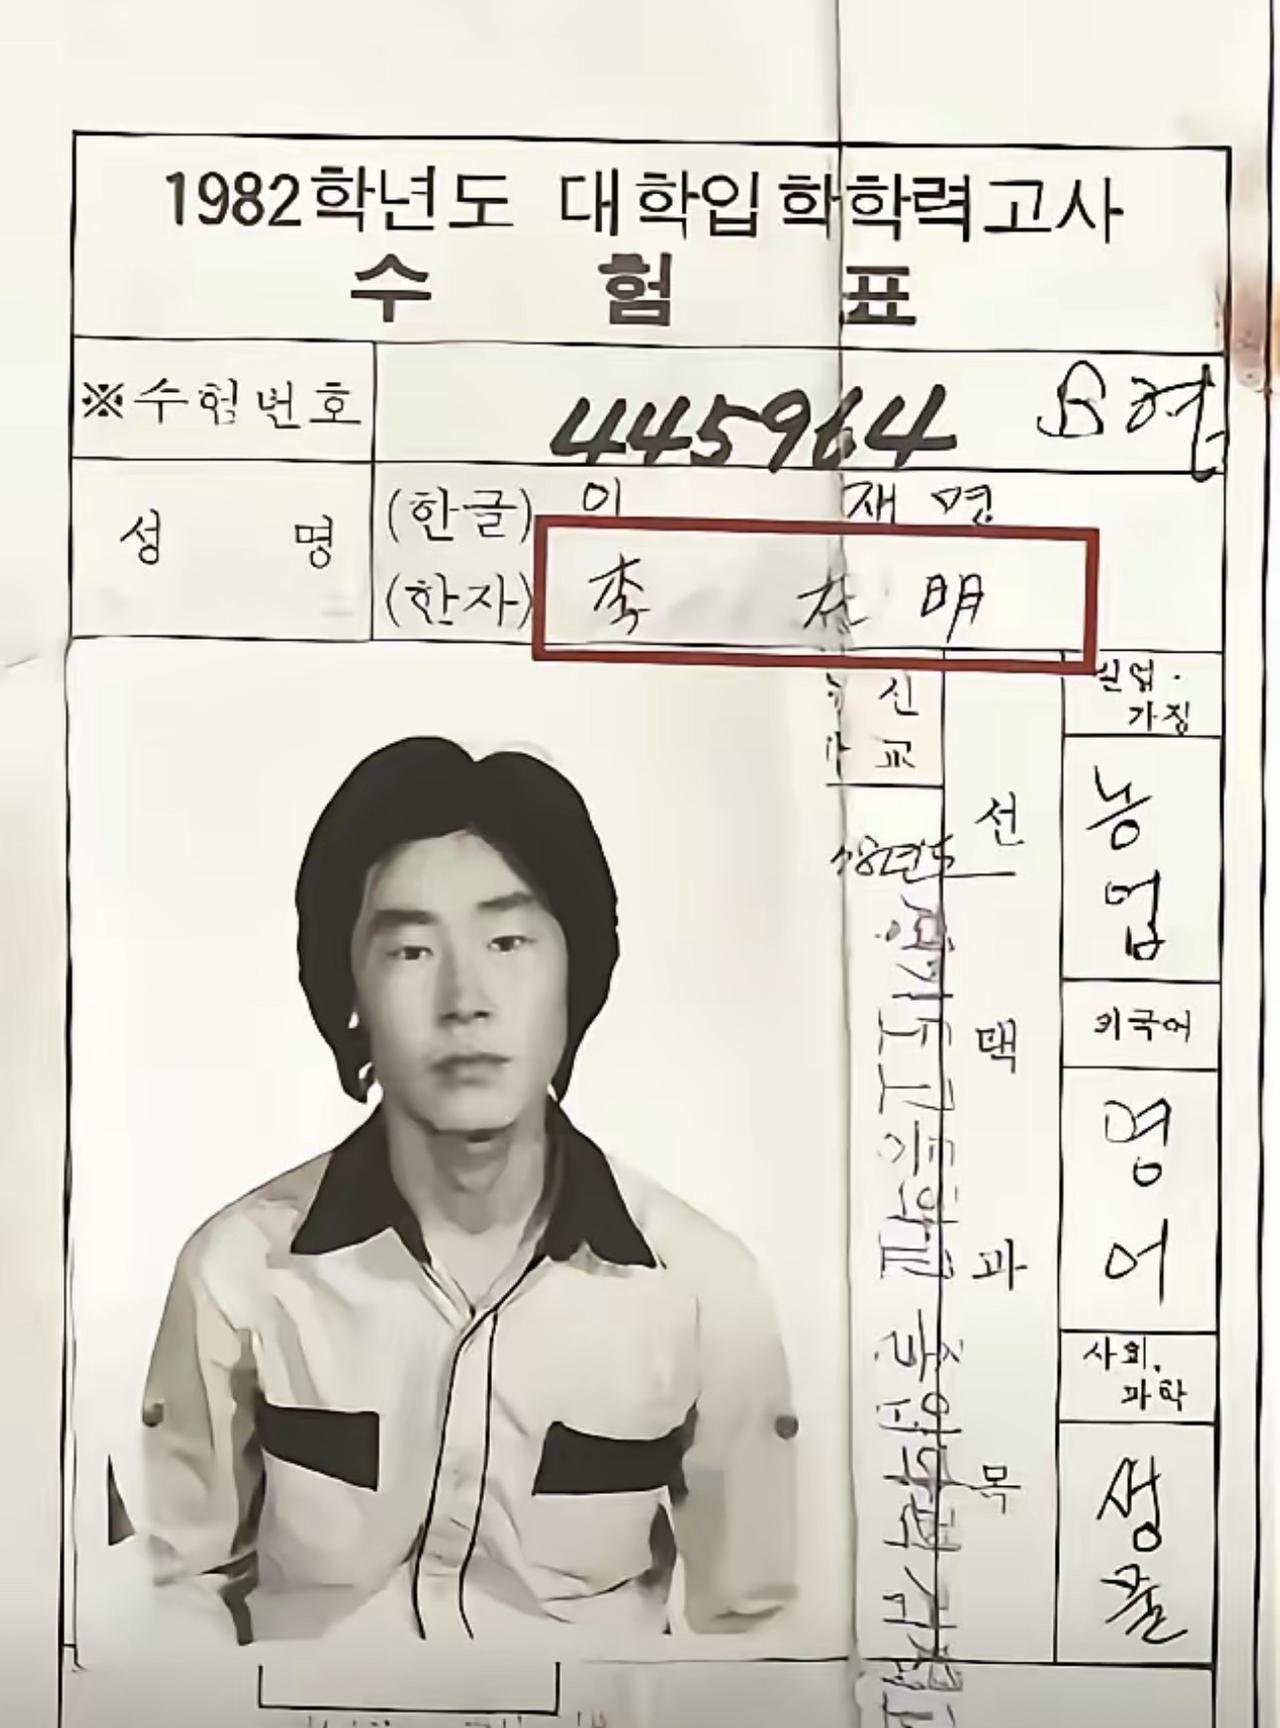 1982학년도 대학입학학력고사
수 험 표
※수험번호 445964 B형
성 명
(한글) 이 재 명
(한자) 李 在 明
신
교
선 택 과 목
실업·
가정
농업
외국어
영어
사회,
과학
생물